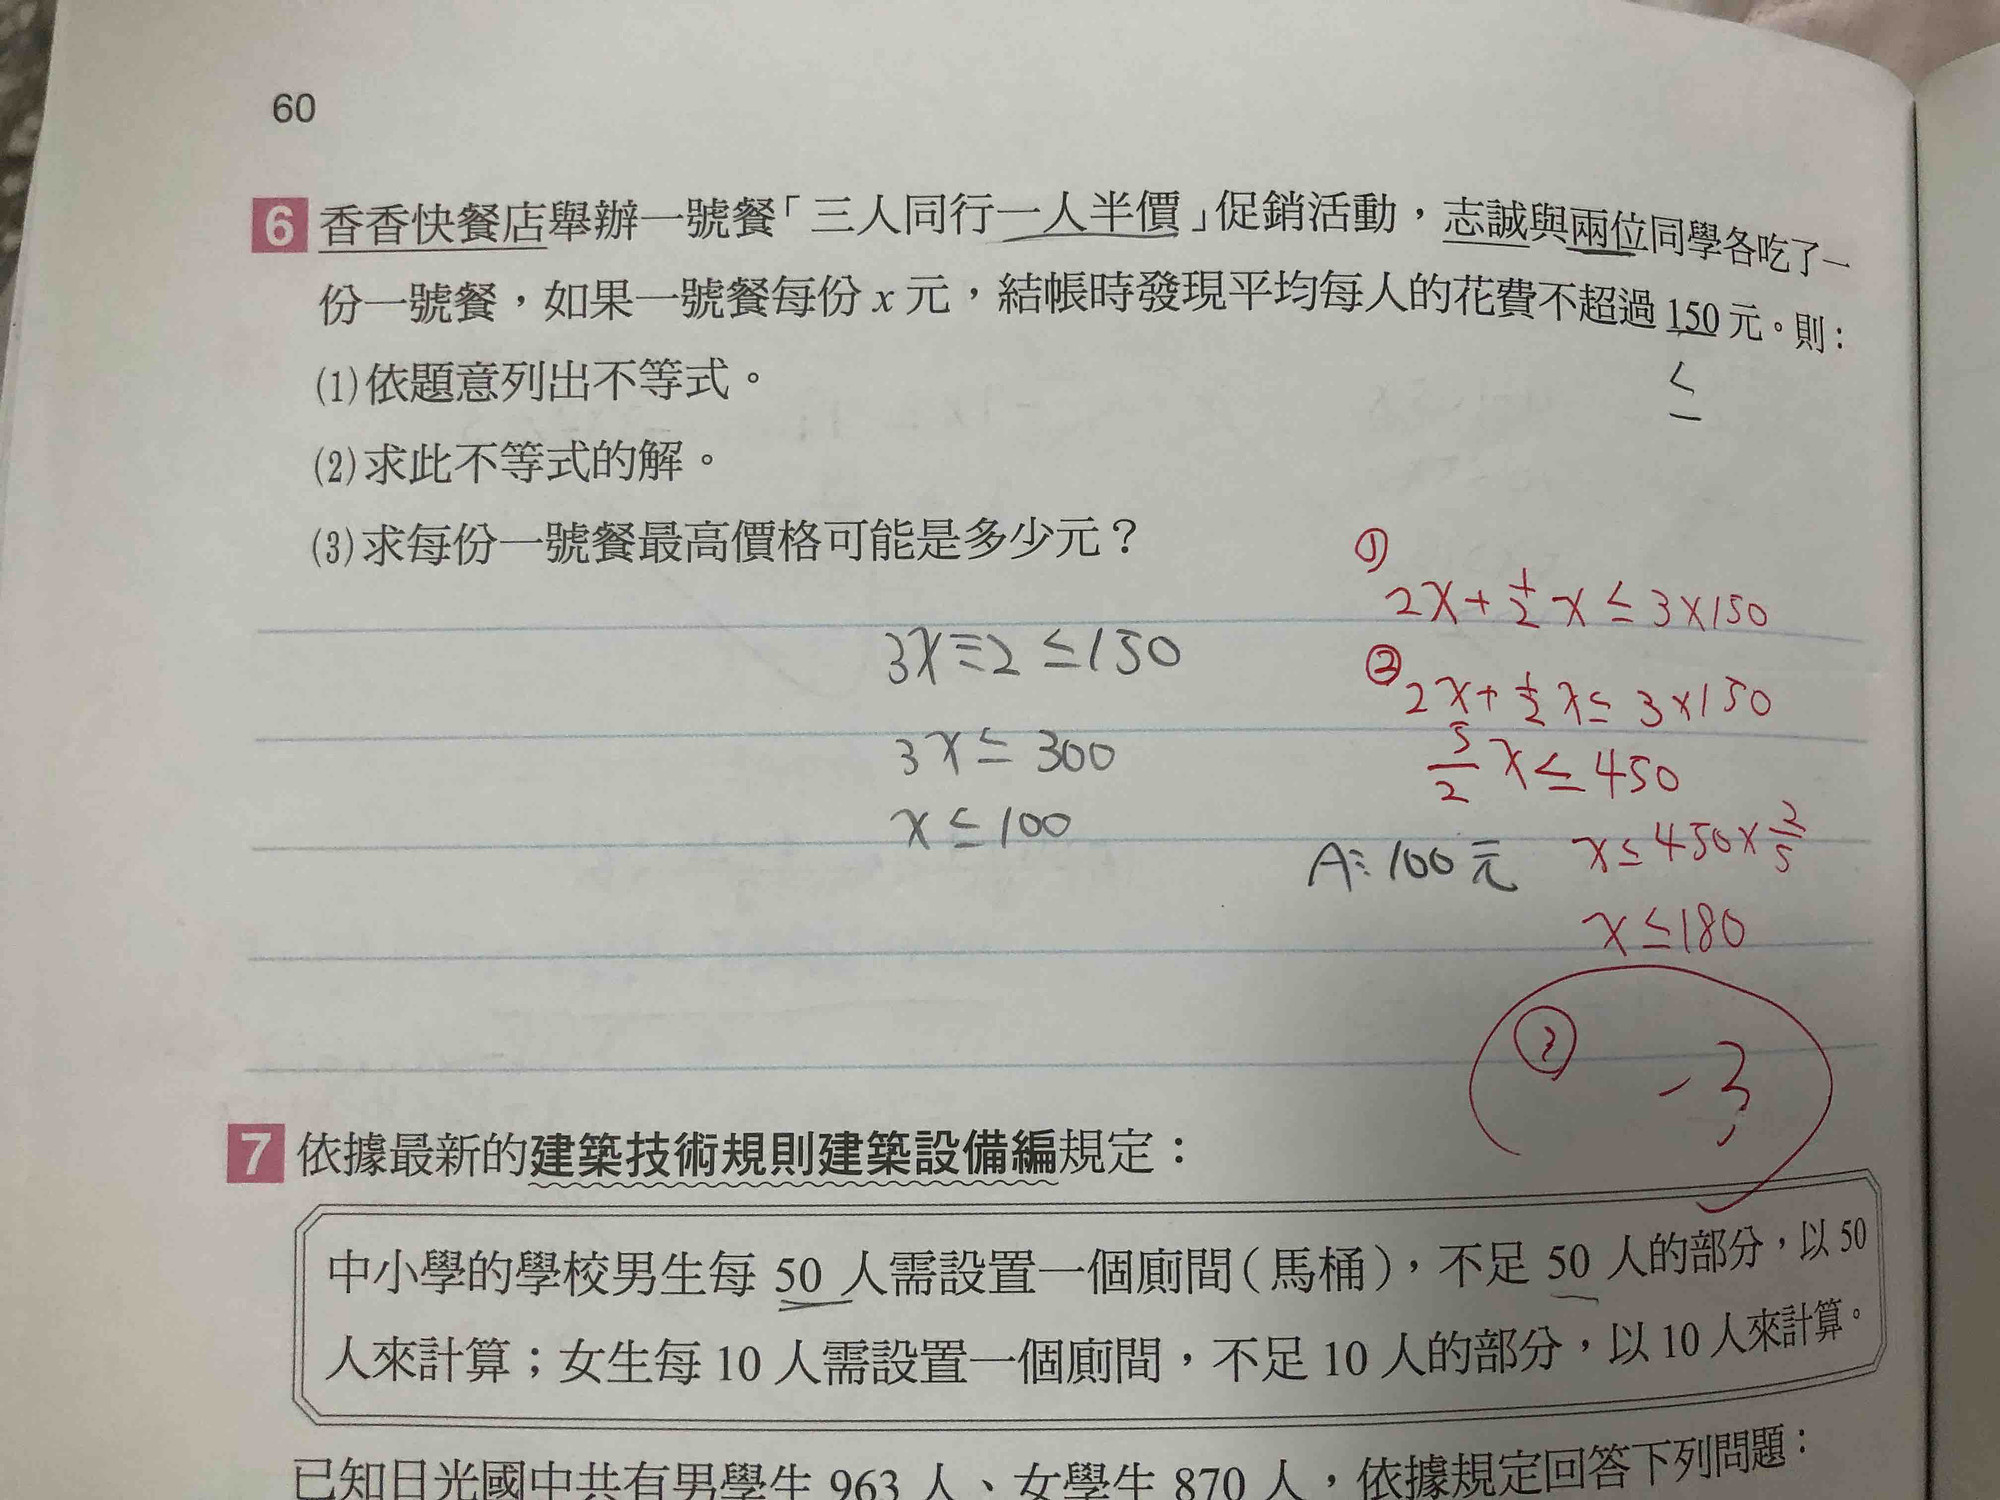 60
6 香香快餐店舉辦一號餐「三人同行一人半價」促銷活動，志誠與兩位同學各吃了一
份一號餐，如果一號餐每份 x 元，結帳時發現平均每人的花費不超過 150 元。則：
≤
(1)依題意列出不等式。
(2)求此不等式的解。
(3)求每份一號餐最高價格可能是多少元？
①
2x+½x≤3×150
3x÷2≤150
②
2x+½x≤3×150
3x≤300
5/2 x≤450
x≤100
x≤450×2/5
A：100元
x≤180
③
-3
7 依據最新的建築技術規則建築設備編規定：
中小學的學校男生每 50 人需設置一個廁間（馬桶），不足 50 人的部分，以 50
人來計算；女生每 10 人需設置一個廁間，不足 10 人的部分，以 10 人來計算。
已知日光國中共有男學生 963 人、女學生 870 人，依據規定回答下列問題：